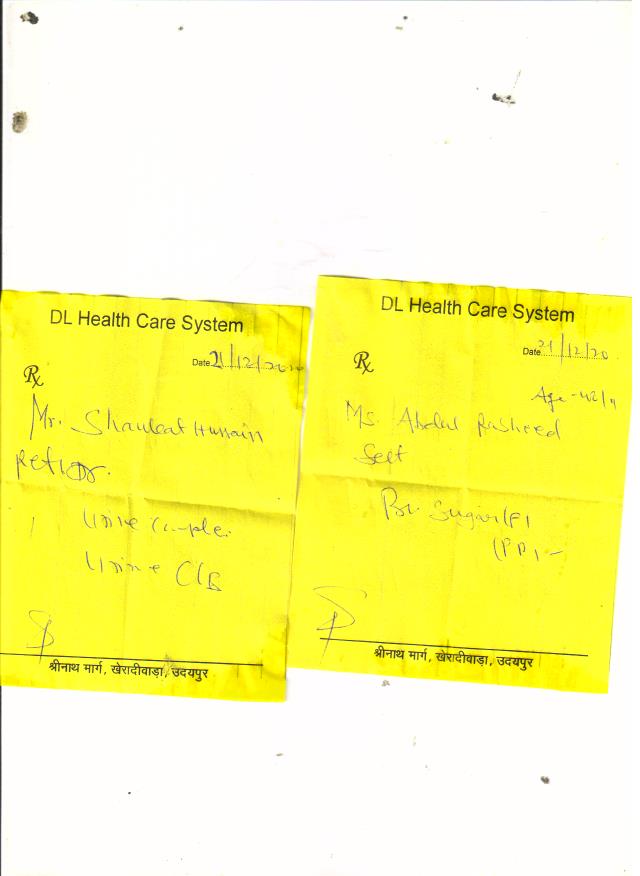 DL Health Care System
Date 21/12/2020
Rx
Mr. Shaukat Hussain
Ref Dr.
Urine Complet
Urine C/S
श्रीनाथ मार्ग, खेरादीवाड़ा, उदयपुर
DL Health Care System
Date 21/12/20
Rx
Age - 42/
Ms. Abdul Rasheed
Self
Bl. Sugar (F)
(PP) -
श्रीनाथ मार्ग, खेरादीवाड़ा, उदयपुर